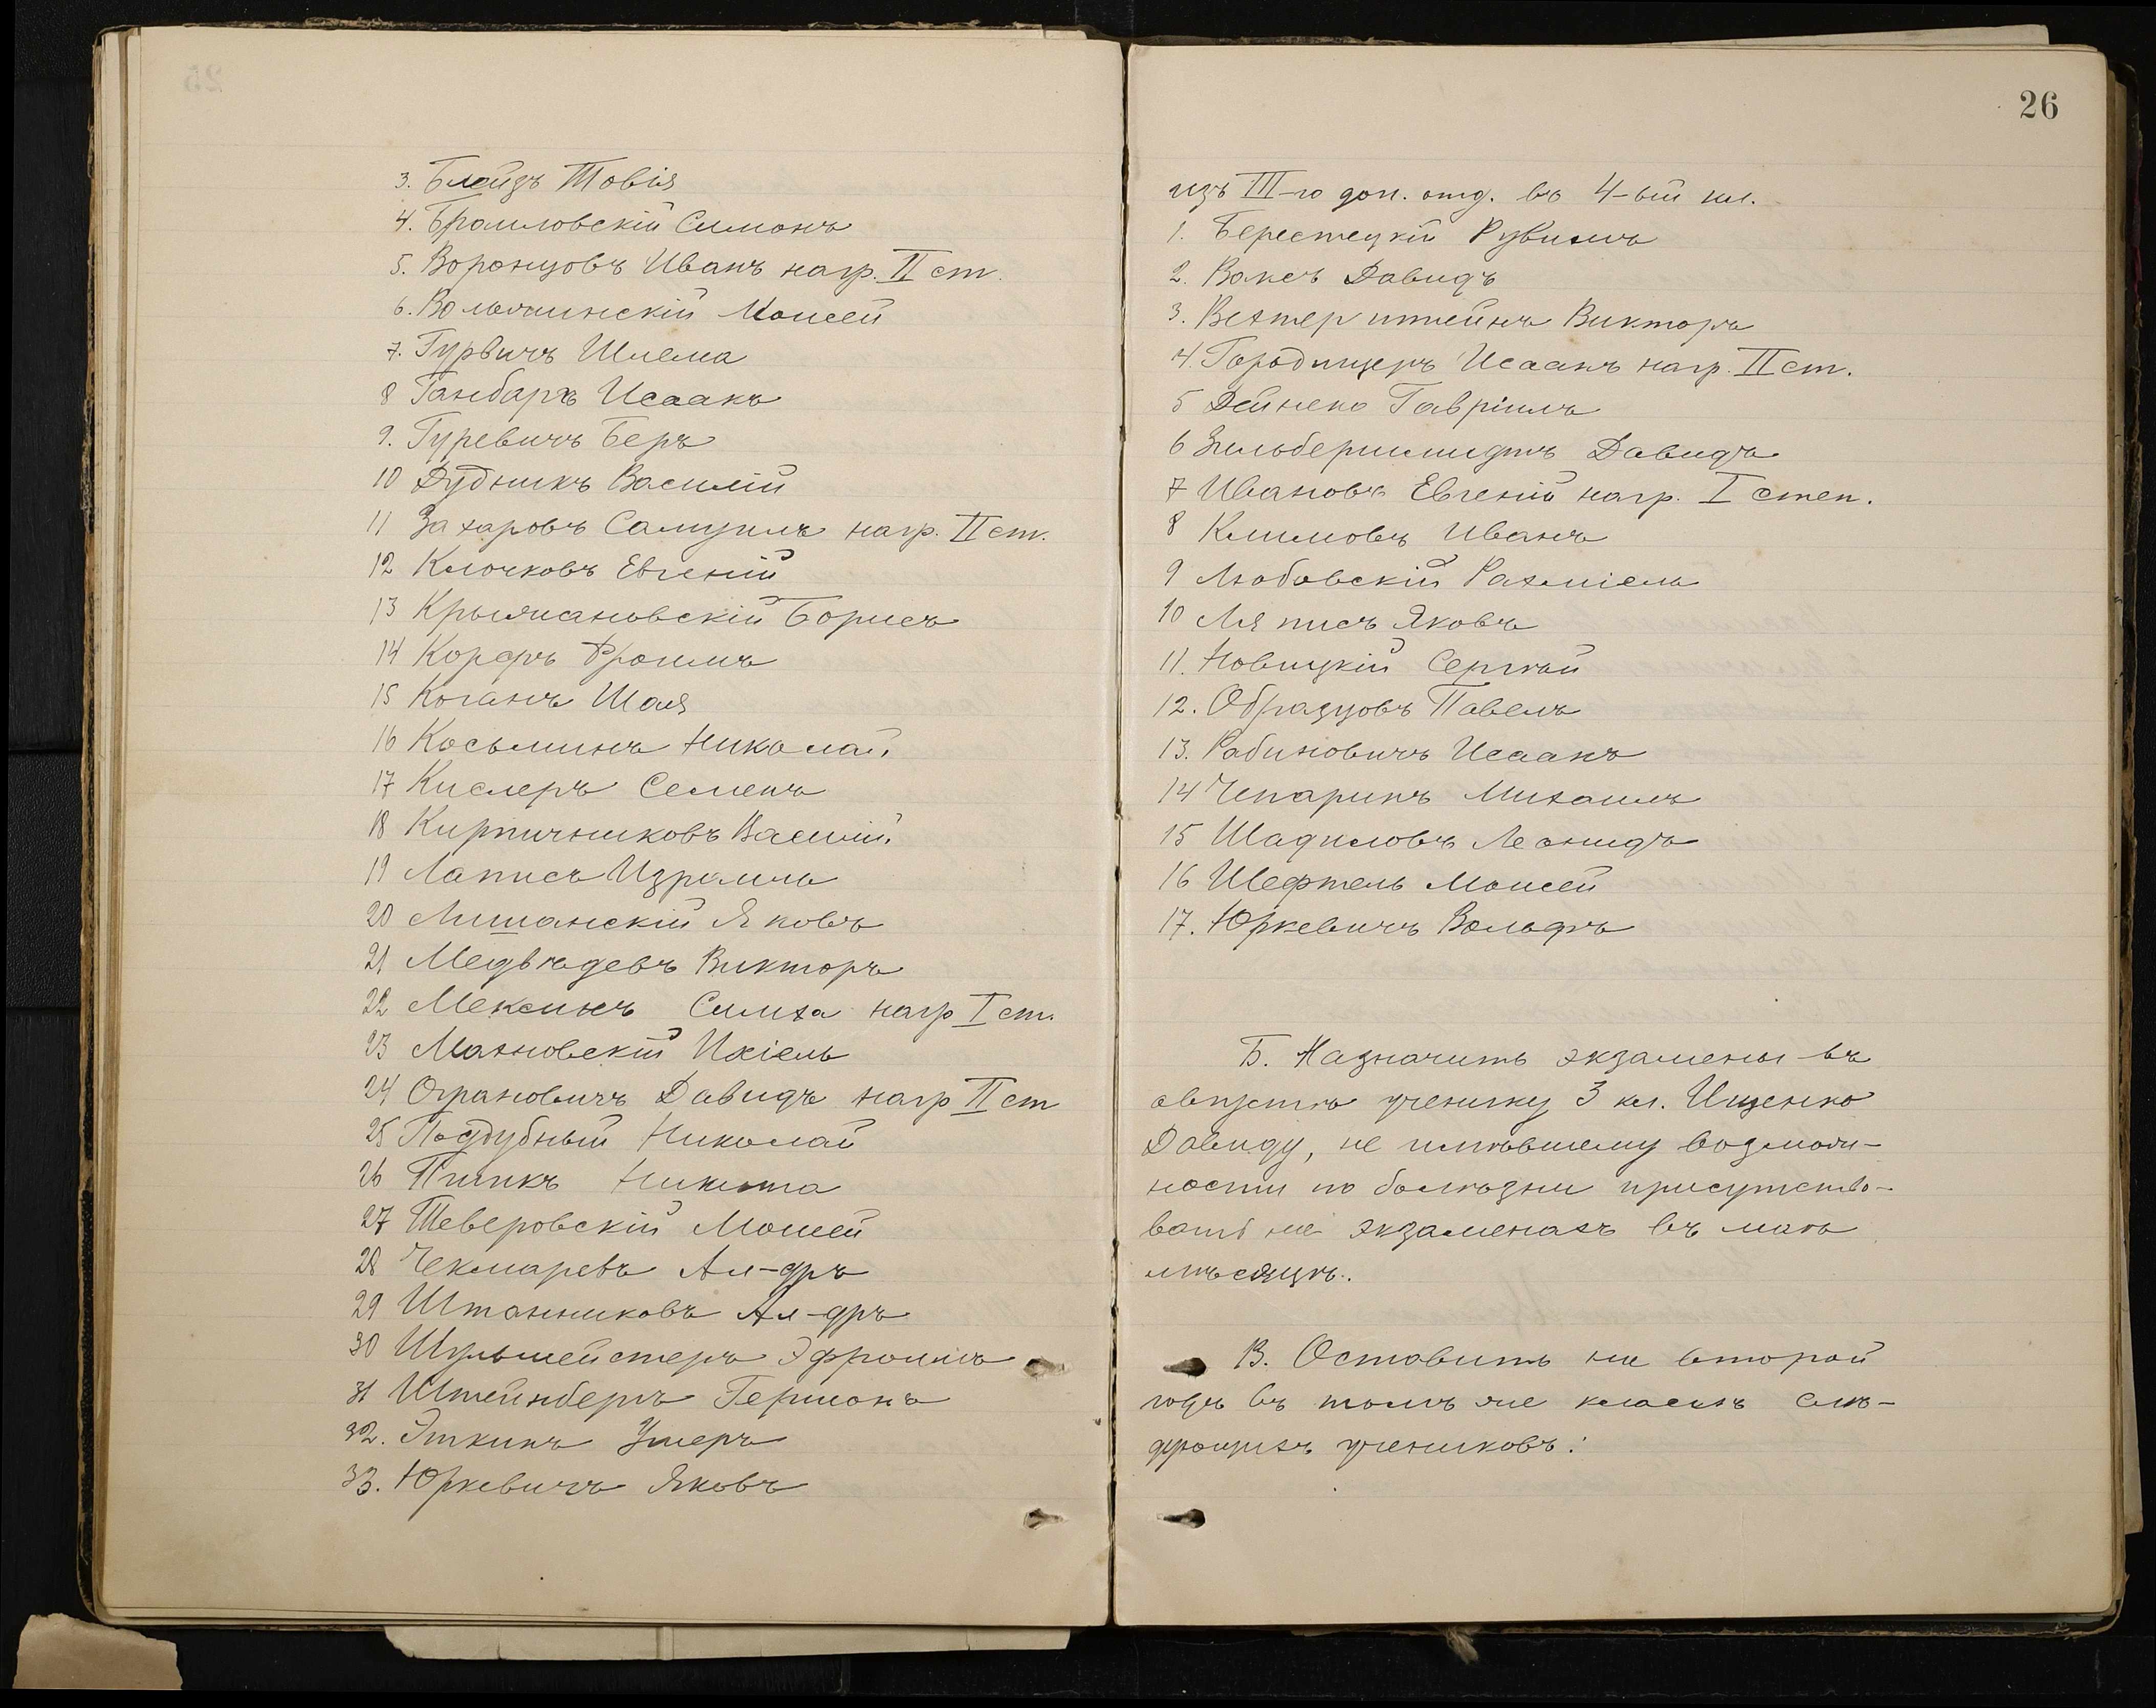 3. Блейзъ Товія
4. Браиловскій Симонъ
5. Воронцовъ Иванъ нагр. II ст.
6. Вольчинскій Моисей
7. Гурвичъ Шлема
8 Ганбаръ Исаакъ
9. Гуревичъ Беръ
10 Дудникъ Василій
11 Захаровъ Самуилъ нагр. II ст.
12 Клочковъ Евгеній
13 Крыжановскій Борисъ
14 Корфъ Фроимъ
15 Коганъ Шая
16 Косьминъ Николай
17 Кислеръ Семенъ
18 Кирпичниковъ Василій
19 Лаписъ Израиль
20 Лишанскій Яковъ
21 Медвѣдевъ Викторъ
22 Мексинъ Симха нагр I ст.
23 Махновскій Ихіель
24 Ограновичъ Давидъ нагр II ст
25 Поддубный Николай
26 Никита
27 Теверовскій Моисей
28 Чекмаревъ Ал-дръ
29 Штанниковъ Ал-дръ
30 Шульмейстеръ Эфроимъ
31 Штейнбергъ Германъ
32. Эткинъ Ушеръ
33. Юркевичъ Яковъ
26
изъ III-го доп. отд. въ 4-ый кл.
1. Берестецкій Рувимъ
2. Ваксъ Давидъ
3. Вехтерштейнъ Викторъ
4. Городищеръ Исаакъ нагр. II ст.
5 Дейнеко Гавріилъ
6 Зильбершмидтъ Давидъ
7 Ивановъ Евгеній нагр. I степ.
8 Климовъ Иванъ
9 Любовскій Рахміель
10 Ляписъ Яковъ
11. Новицкій Сергѣй
12. Образцовъ Павелъ
13. Рабиновичъ Исаакъ
14 Чепаринъ Михаилъ
15 Шадиловъ Леонидъ
16 Шефтель Моисей
17. Юркевичъ Вольфъ
Б. Назначить экзамены въ
августѣ ученику 3 кл. Ищенко
Давиду, не имѣвшему возмож-
ности по болѣзни присутство-
вать на экзаменахъ въ маѣ
мѣсяцѣ.
В. Оставить на второй
годъ въ томъ же классѣ слѣ-
дующихъ учениковъ: